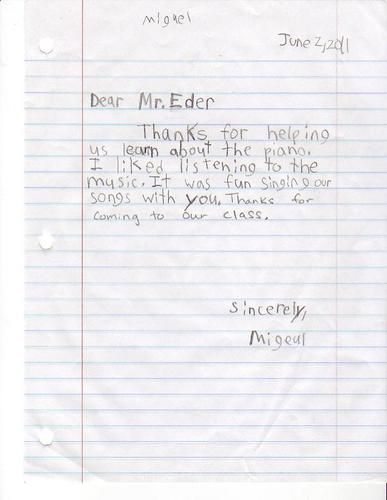 Miguel
June 2, 2011
Dear Mr. Eder
Thanks for helping
us learn about the piano.
I liked listening to the
music. It was fun singing our
songs with you. Thanks for
coming to our class.
Sincerely,
Migeul